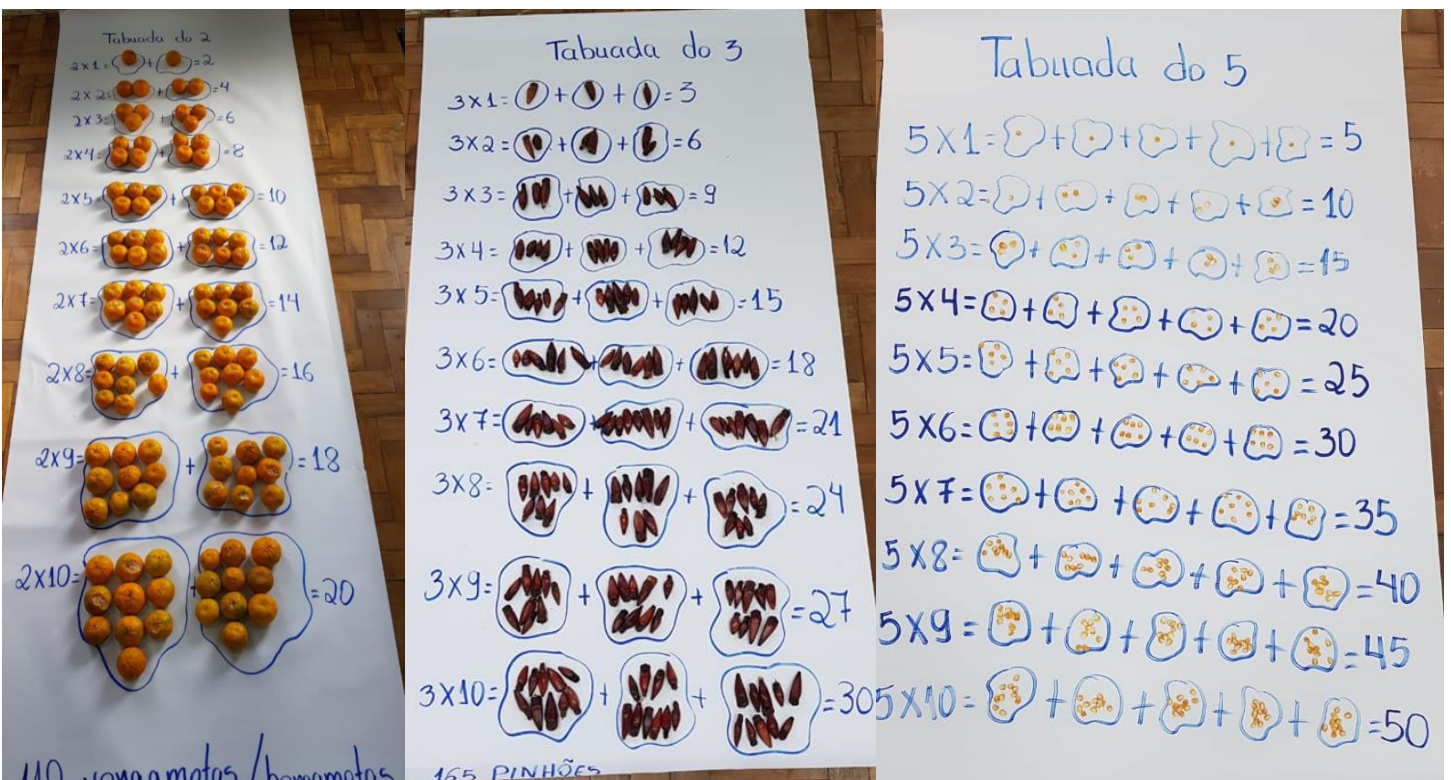 Tabuada do 2
2x1= + =2
2x2= + =4
2x3= + =6
2x4= + =8
2x5= + =10
2x6= + =12
2x7= + =14
2x8= + =16
2x9= + =18
2x10= + =20
110
Tabuada do 3
3x1= + + =3
3x2= + + =6
3x3= + + =9
3x4= + + =12
3x5= + + =15
3x6= + + =18
3x7= + + =21
3x8= + + =24
3x9= + + =27
3x10= + + =30
165 PINHÕES
Tabuada do 5
5x1= + + + + =5
5x2= + + + + =10
5x3= + + + + =15
5x4= + + + + =20
5x5= + + + + =25
5x6= + + + + =30
5x7= + + + + =35
5x8= + + + + =40
5x9= + + + + =45
5x10= + + + + =50